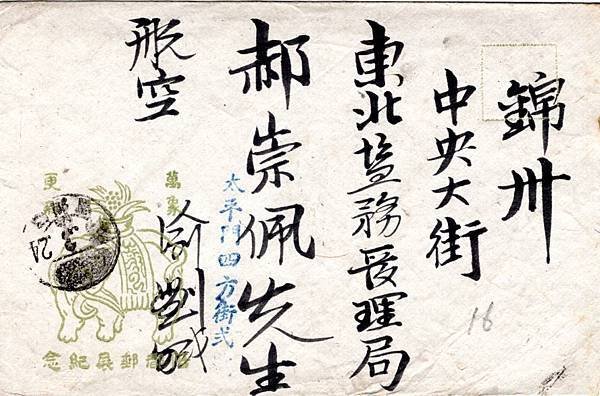 錦州
中央大街
東北塩務管理局
郝崇佩先生
太平門四方街弍
航空
萬象
更
郵展紀念
16